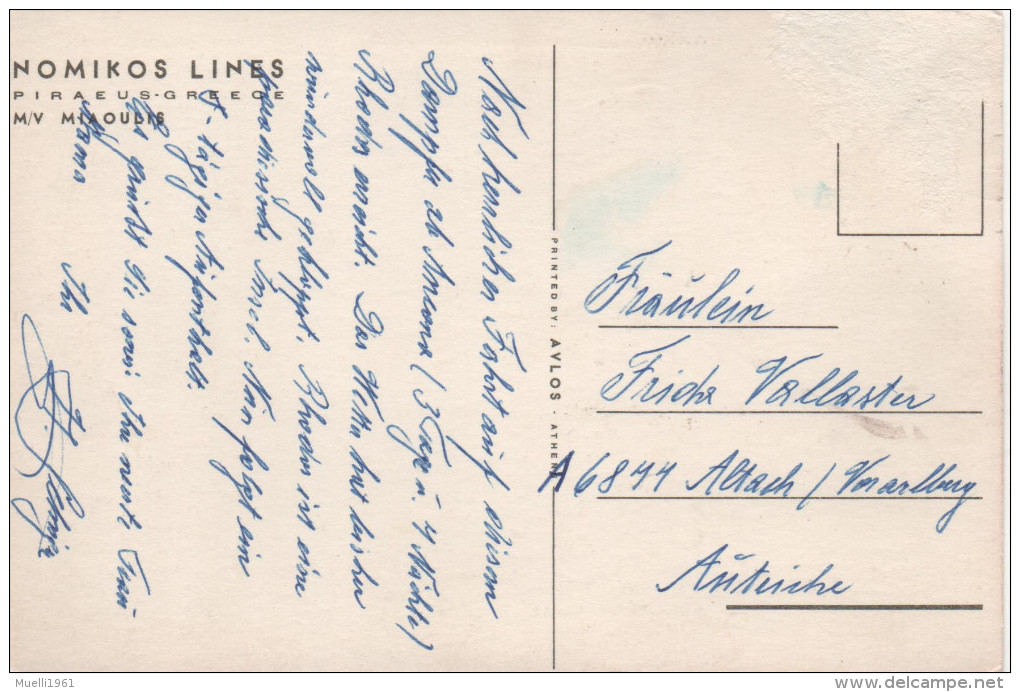 NOMIKOS LINES
PIRAEUS-GREECE
M/V MIAOULIS
Nach herrlicher Fahrt auf diesem
Dampfer ab Ancona (3 Tage u. 4 Nächte)
Rhodos erreicht. Das Wetter hat bisher
wundervoll geklappt. Rhodos ist eine
paradiesische Insel. Nun folgt ein
tägiger Aufenthalt.
Es grüßt Sie sowie Ihre werte Frau
Mama
Ihr
PRINTED BY: AVLOS - ATHENS
Fräulein
Frida Vallaster
A 6844 Altach / Vorarlberg
Autriche
Muelli1961
delcampe.net